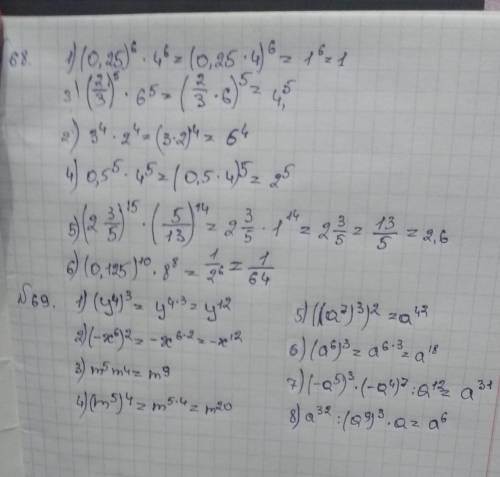 68. 1) (0,25)⁶ · 4⁶ = (0,25 · 4)⁶ = 1⁶ = 1
3) (2/3)⁵ · 6⁵ = (2/3 · 6)⁵ = 4⁵,
2) 3⁴ · 2⁴ = (3·2)⁴ = 6⁴
4) 0,5⁵ · 4⁵ = (0,5 · 4)⁵ = 2⁵
5) (2 3/5)¹⁵ · (5/13)¹⁴ = 2 3/5 · 1¹⁴ = 2 3/5 = 13/5 = 2,6
6) (0,125)¹⁰ · 8⁸ = 1/2⁶ = 1/64
№69. 1) (y⁴)³ = y⁴·³ = y¹²
2) (-x⁶)² = -x⁶·² = -x¹²
3) m⁵m⁴ = m⁹
4) (m⁵)⁴ = m⁵·⁴ = m²⁰
5) ((a⁷)³)² = a⁴²
6) (a⁶)³ = a⁶·³ = a¹⁸
7) (-a⁵)³ · (-a⁴)⁷ : a¹² = a³¹
8) a³² : (a⁹)³ · a = a⁶